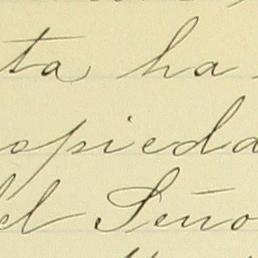 ta ha
opieda
el Seño